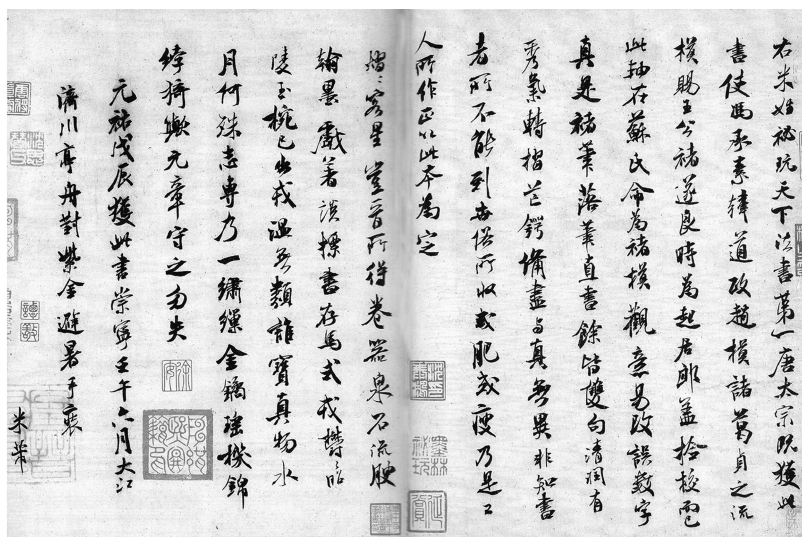 右米姓秘玩天下法書第一唐太宗既獲此
書使馮承素韓道政趙模諸葛貞之流
模賜王公褚遂良時為起居郎蓋撿校而已
此軸在蘇氏命為褚模觀意易改誤數字
真是褚筆落筆直書餘皆雙勾清潤有
秀氣轉摺芒鍔備盡与真無異非知書
者所不能到世俗所收或肥或瘦乃是工
人所作正以此本為定
熠熠客星豈晉所得卷器泉石流腴
翰墨戲著談標書存馬式鬱鬱昭
陵玉椀已出戎溫無類誰寶真物水
月何殊志專乃一繡繅金鐍瑤機錦
綷猗歟元章守之勿失
元祐戊辰獲此書崇寧壬午六月大江
濟川亭舟對紫金避暑手裝
米芾